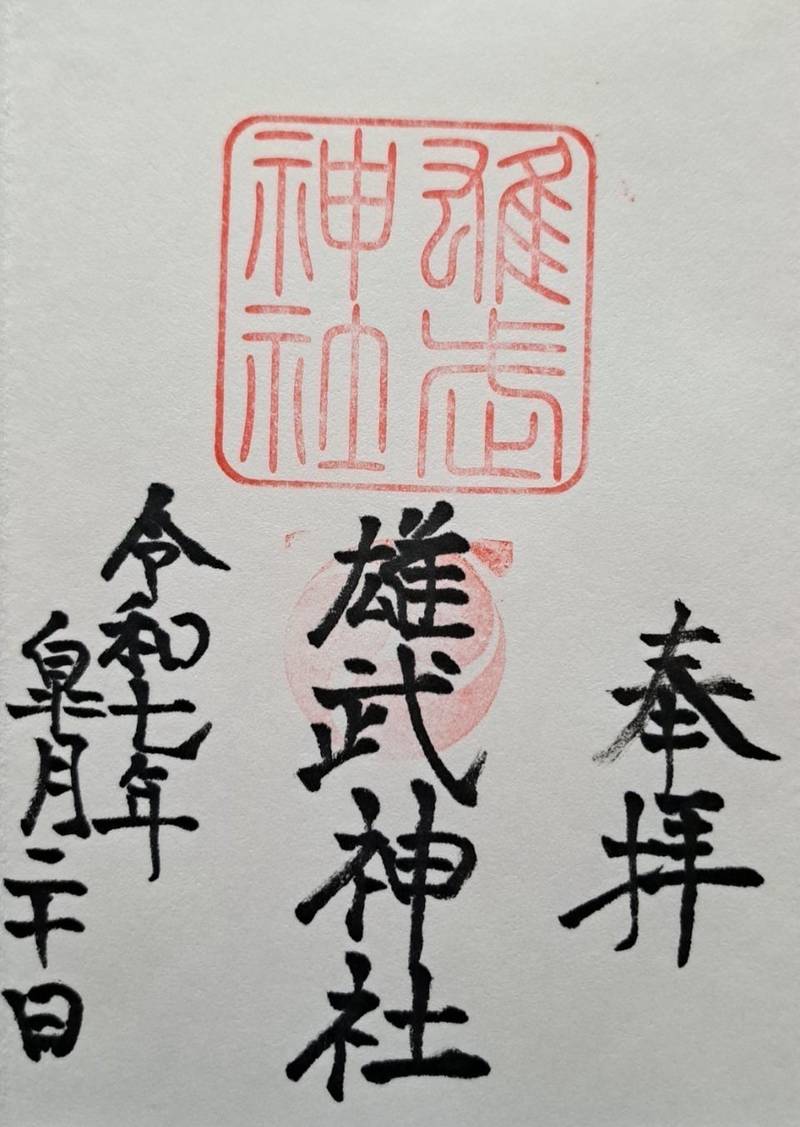 奉拝
雄武
神社
雄武神社
令和七年
皐月二十日